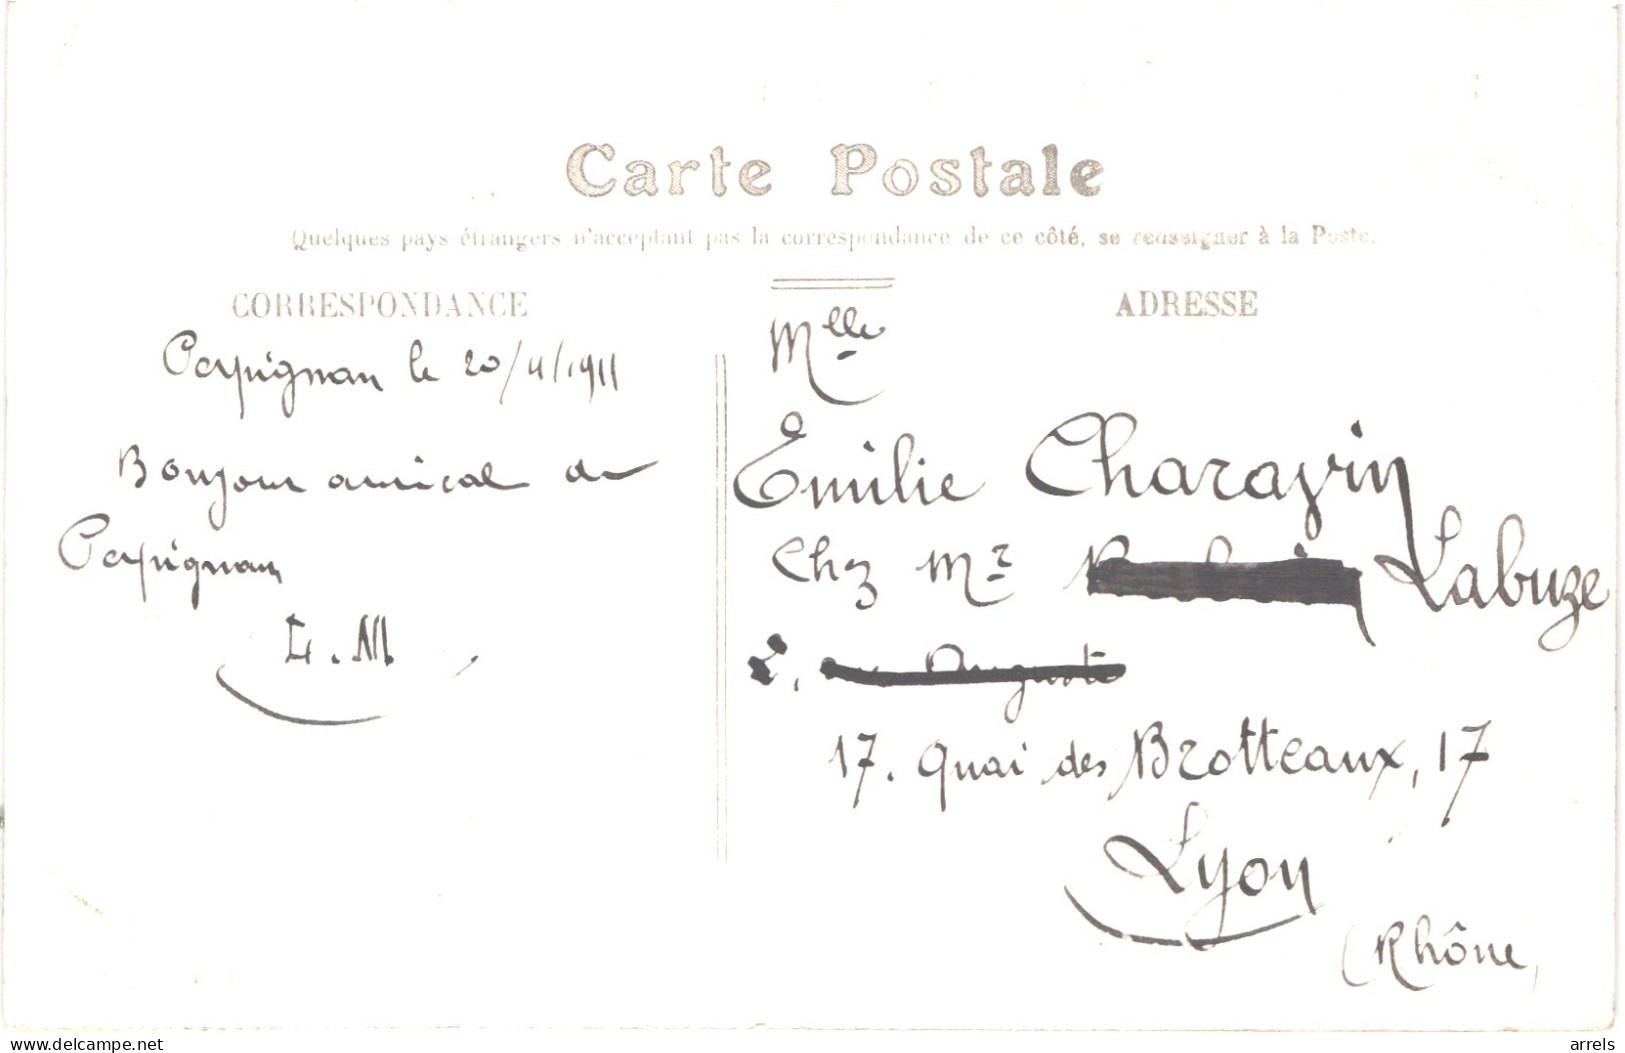 Carte Postale
Quelques pays étrangers n'acceptant pas la correspondance de ce côté, se renseigner à la Poste.
CORRESPONDANCE
Perpignan le 20/4/1911
Bonjour amical de
Perpignan
L. M.
ADRESSE
Mlle
Emilie Charavin
Chez Mr Labuze
2, rue Auguste
17. Quai des Brotteaux, 17
Lyon
(Rhône)
delcampe.net
arrels